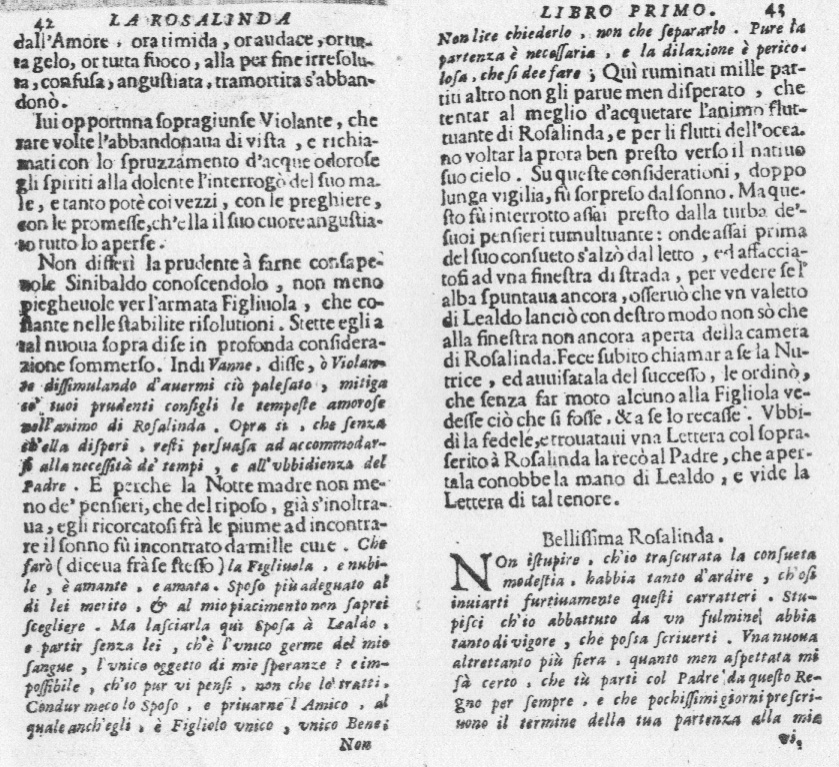 42 LA ROSALINDA
dall'Amore, ora timida, or audace, or tut-
ta gelo, or tutta fuoco, alla per fine irresolu-
ta, confusa, angustiata, tramortita s'abban-
donò.
Iui opportnna sopragiunse Violante, che
rare volte l'abbandonaua di vista, e richia-
mati con lo spruzzamento d'acque odorose
gli spiriti alla dolente l'interrogò del suo ma-
le, e tanto potè coi vezzi, con le preghiere,
con le promesse, ch'ella il suo cuore angustia-
to tutto lo aperse.
Non differì la prudente à farne consape-
uole Sinibaldo conoscendolo, non meno
piegheuole ver l'armata Figliuola, che co-
stante nelle stabilite risolutioni. Stette egli a
tal nuoua sopra dise in profonda considera-
zione sommerso. Indi Vanne, disse, ò Violan-
te dissimulando d'auermi ciò palesato, mitiga
co' tuoi prudenti consigli le tempeste amorose
nell'animo di Rosalinda. Opra sì, che senza
ch'ella disperi, resti persuasa ad accommodar-
si alla necessità de' tempi, e all'vbbidienza del
Padre. E perche la Notte madre non me-
no de' pensieri, che del riposo, già s'inoltra-
ua, egli ricorcatosi frà le piume ad incontra-
re il sonno fù incontrato da mille cure. Che
farò (diceua frà se stesso) la Figliuola, e nubi-
le, è amante, e amata. Sposo più adeguato al
di lei merito, & al mio piacimento non saprei
scegliere. Ma lasciarla quì Sposa à Lealdo,
e partir senza lei, ch'è l'vnico germe del mio
sangue, l'vnico oggetto di mie speranze? e im-
possibile, ch'io pur vi pensi, non che lo tratti.
Condur meco lo Sposo, e priuarne l'Amico, al
quale anch'egli, è Figliolo vnico, vnico Bene;
Non
LIBRO PRIMO. 43
Non lice chiederlo, non che separarlo. Pure la
partenza è necessaria, e la dilazione è perico-
losa, che si dee fare; Quì ruminati mille par-
titi altro non gli parue men disperato, che
tentar al meglio d'acquetare l'animo flut-
tuante di Rosalinda, e per li flutti dell'ocea-
no voltar la prora ben presto verso il natiuo
suo cielo. Su queste considerationi, doppo
lunga vigilia, fù sorpreso dal sonno. Ma que-
sto fù interrotto assai presto dalla turba de'
suoi pensieri tumultuante: onde assai prima
del suo consueto s'alzò dal letto, ed affaccia-
tosi ad vna finestra di strada, per vedere se l'
alba spuntaua ancora, osseruò che vn valetto
di Lealdo lanciò con destro modo non sò che
alla finestra non ancora aperta della camera
di Rosalinda. Fece subito chiamar a se la Nu-
trice, ed auuisatala del successo, le ordinò,
che senza far moto alcuno alla Figliola ve-
desse ciò che si fosse, & a se lo recasse. Vbbi-
dì la fedele, e trouataui vna Lettera col sopra-
scritto à Rosalinda la recò al Padre, che aper-
tala conobbe la mano di Lealdo, e vide la
Lettera di tal tenore.
Bellissima Rosalinda.
NOn istupire, ch'io trascurata la consueta
modestia, habbia tanto d'ardire, ch'osi
inuiarti furtiuamente questi carratteri. Stu-
pisci ch'io abbattuto da vn fulmine, abbia
tanto di vigore, che possa scriuerti. Vna nuoua
altrettanto più fiera, quanto men aspettata mi
fà certo, che tù parti col Padre da questo Re-
gno per sempre, e che pochissimi giorni prescri-
uono il termine della tua partenza alla mia
vi,